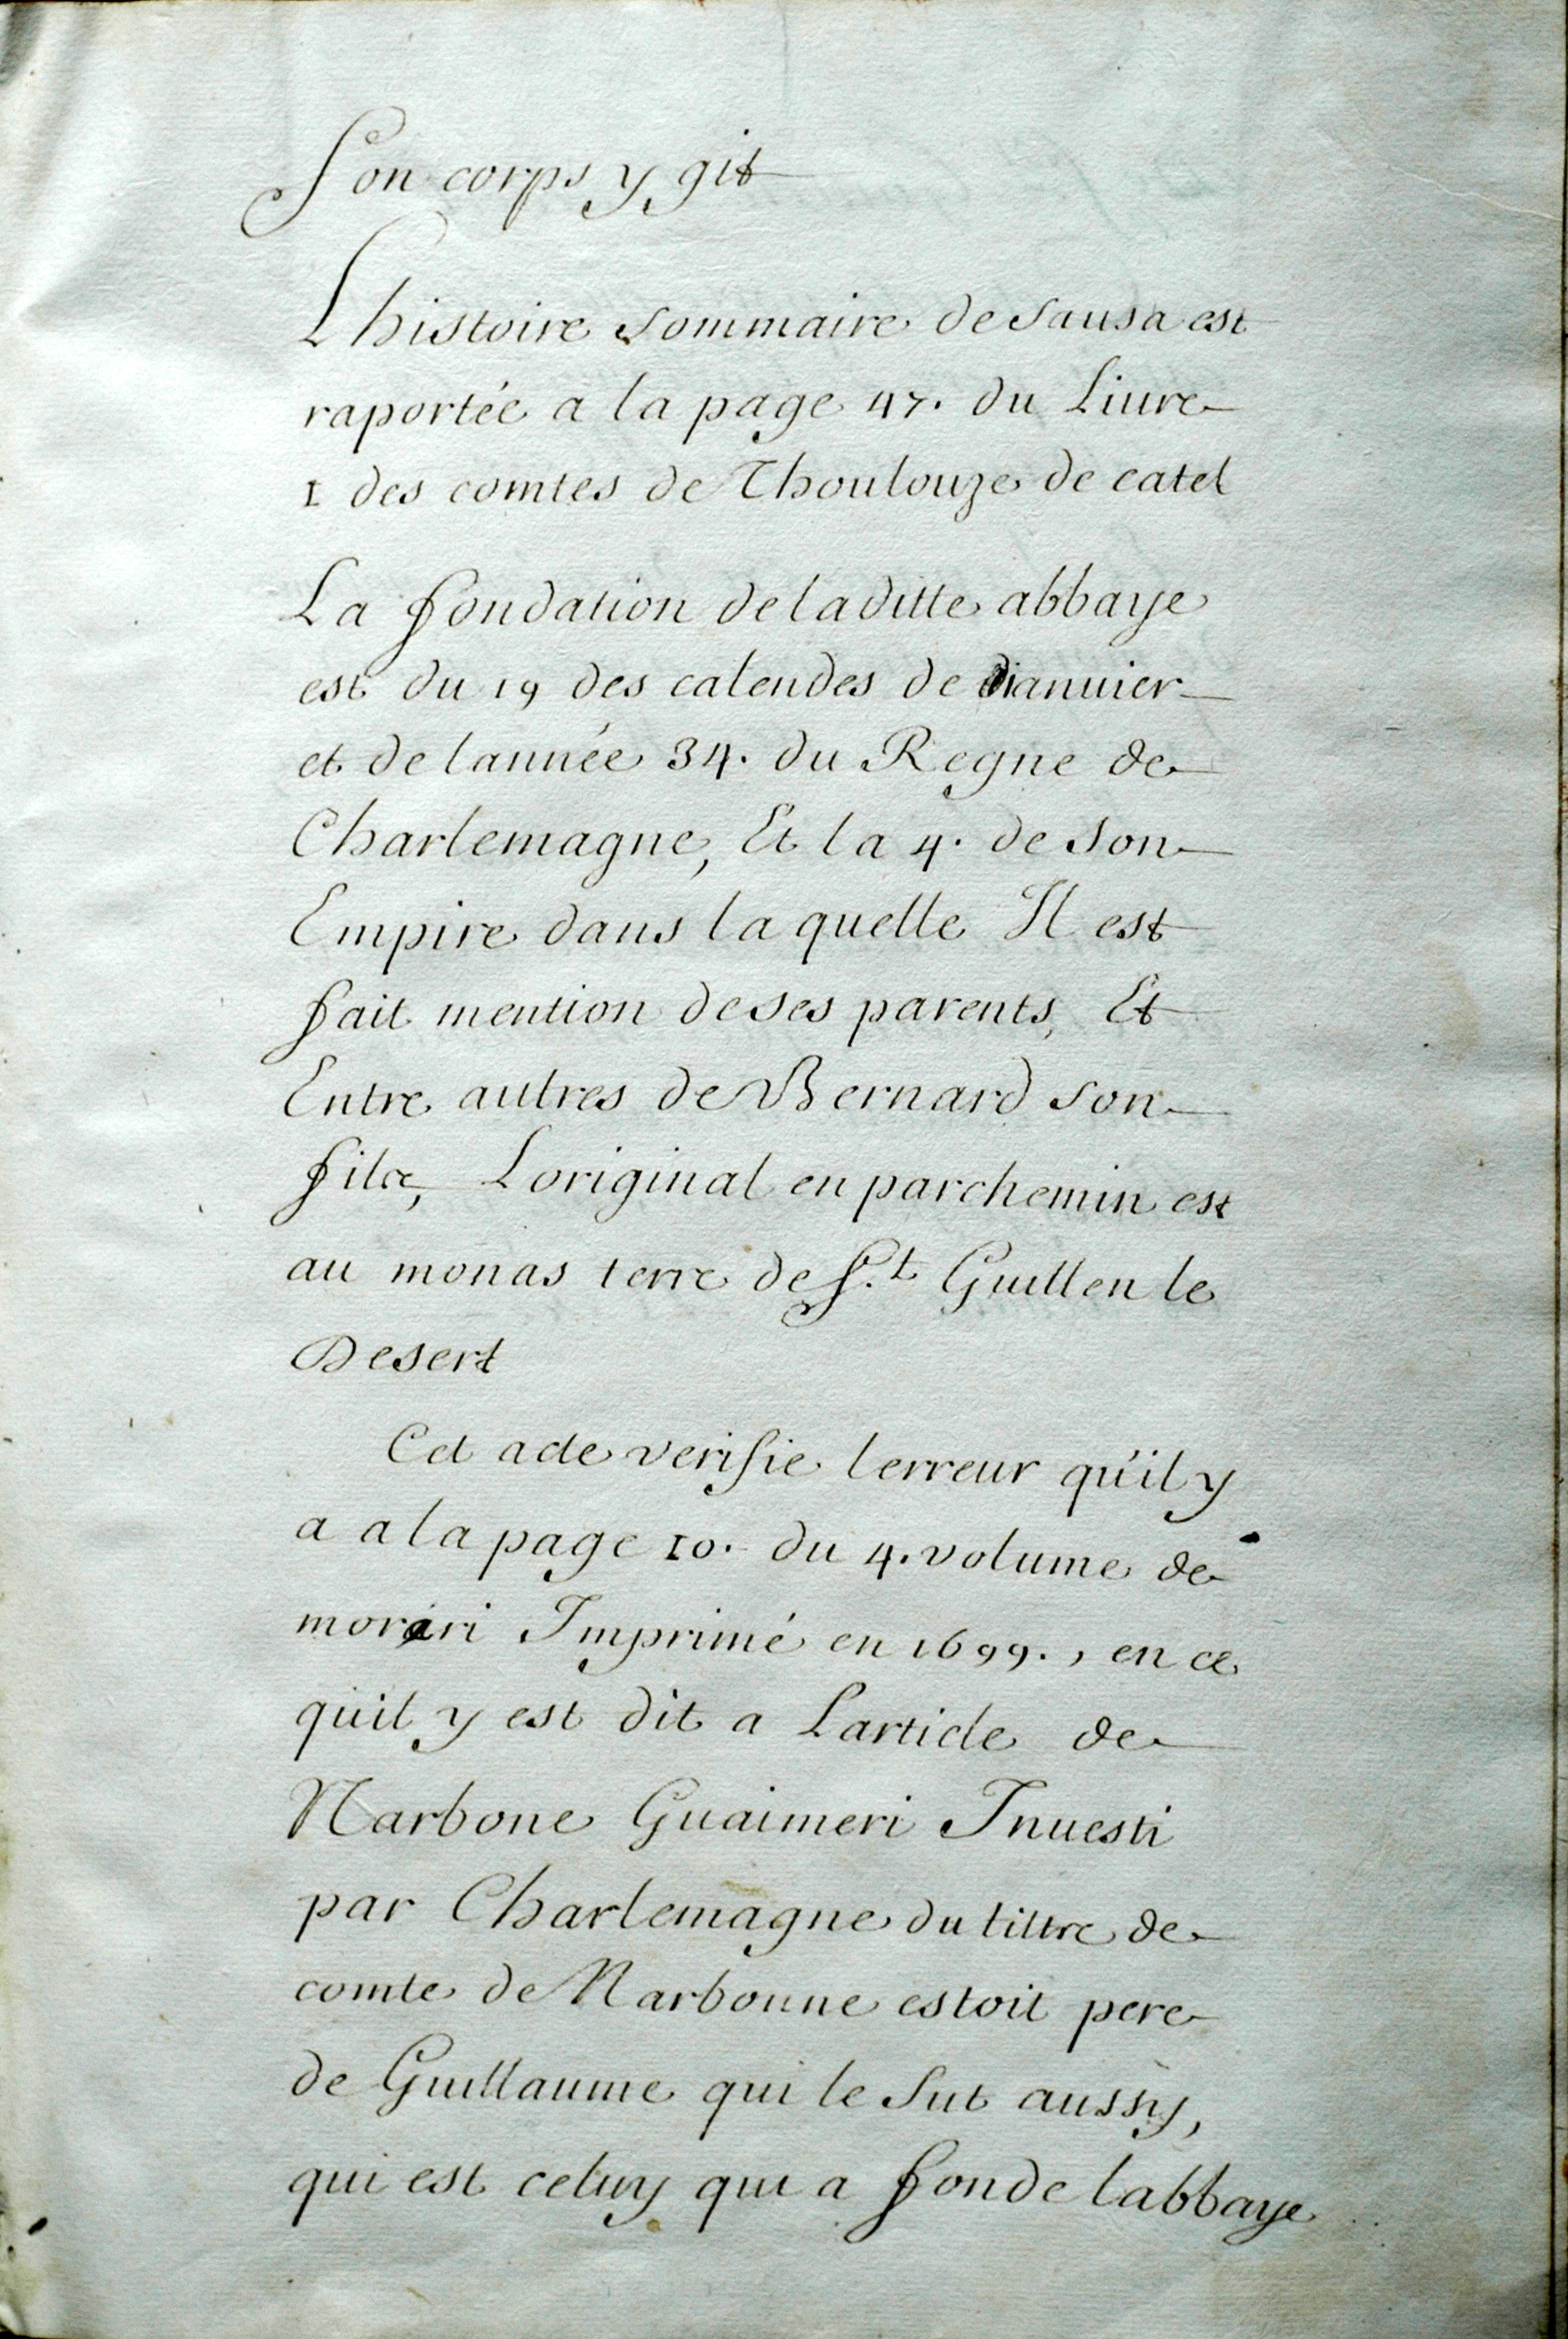 Son corps y git
Lhistoire sommaire de sausa est
raportée a la page 47. du Liure
I des comtes de Thoulouze de catel
La fondation de laditte abbaye
est du 19 des calendes de dianuier
et de lannée 34. du Regne de
Charlemagne, Et la 4. de son
Empire dans la quelle Il est
fait mention de ses parents, Et
Entre autres de Bernard son
fils, Loriginal en parchemin est
au monas terre de S.t Guillen le
Desert
Cet acte verifie lerreur qu'il y
a a la page 10. du 4. volume de
moreri Imprimé en 1699., en ce
quil y est dit a Larticle de
Narbone Guaimeri Inuesti
par Charlemagne du tiltre de
comte de Narbonne estoit pere
de Guillaume qui le fut aussy,
qui est celuy qui a fonde labbaye